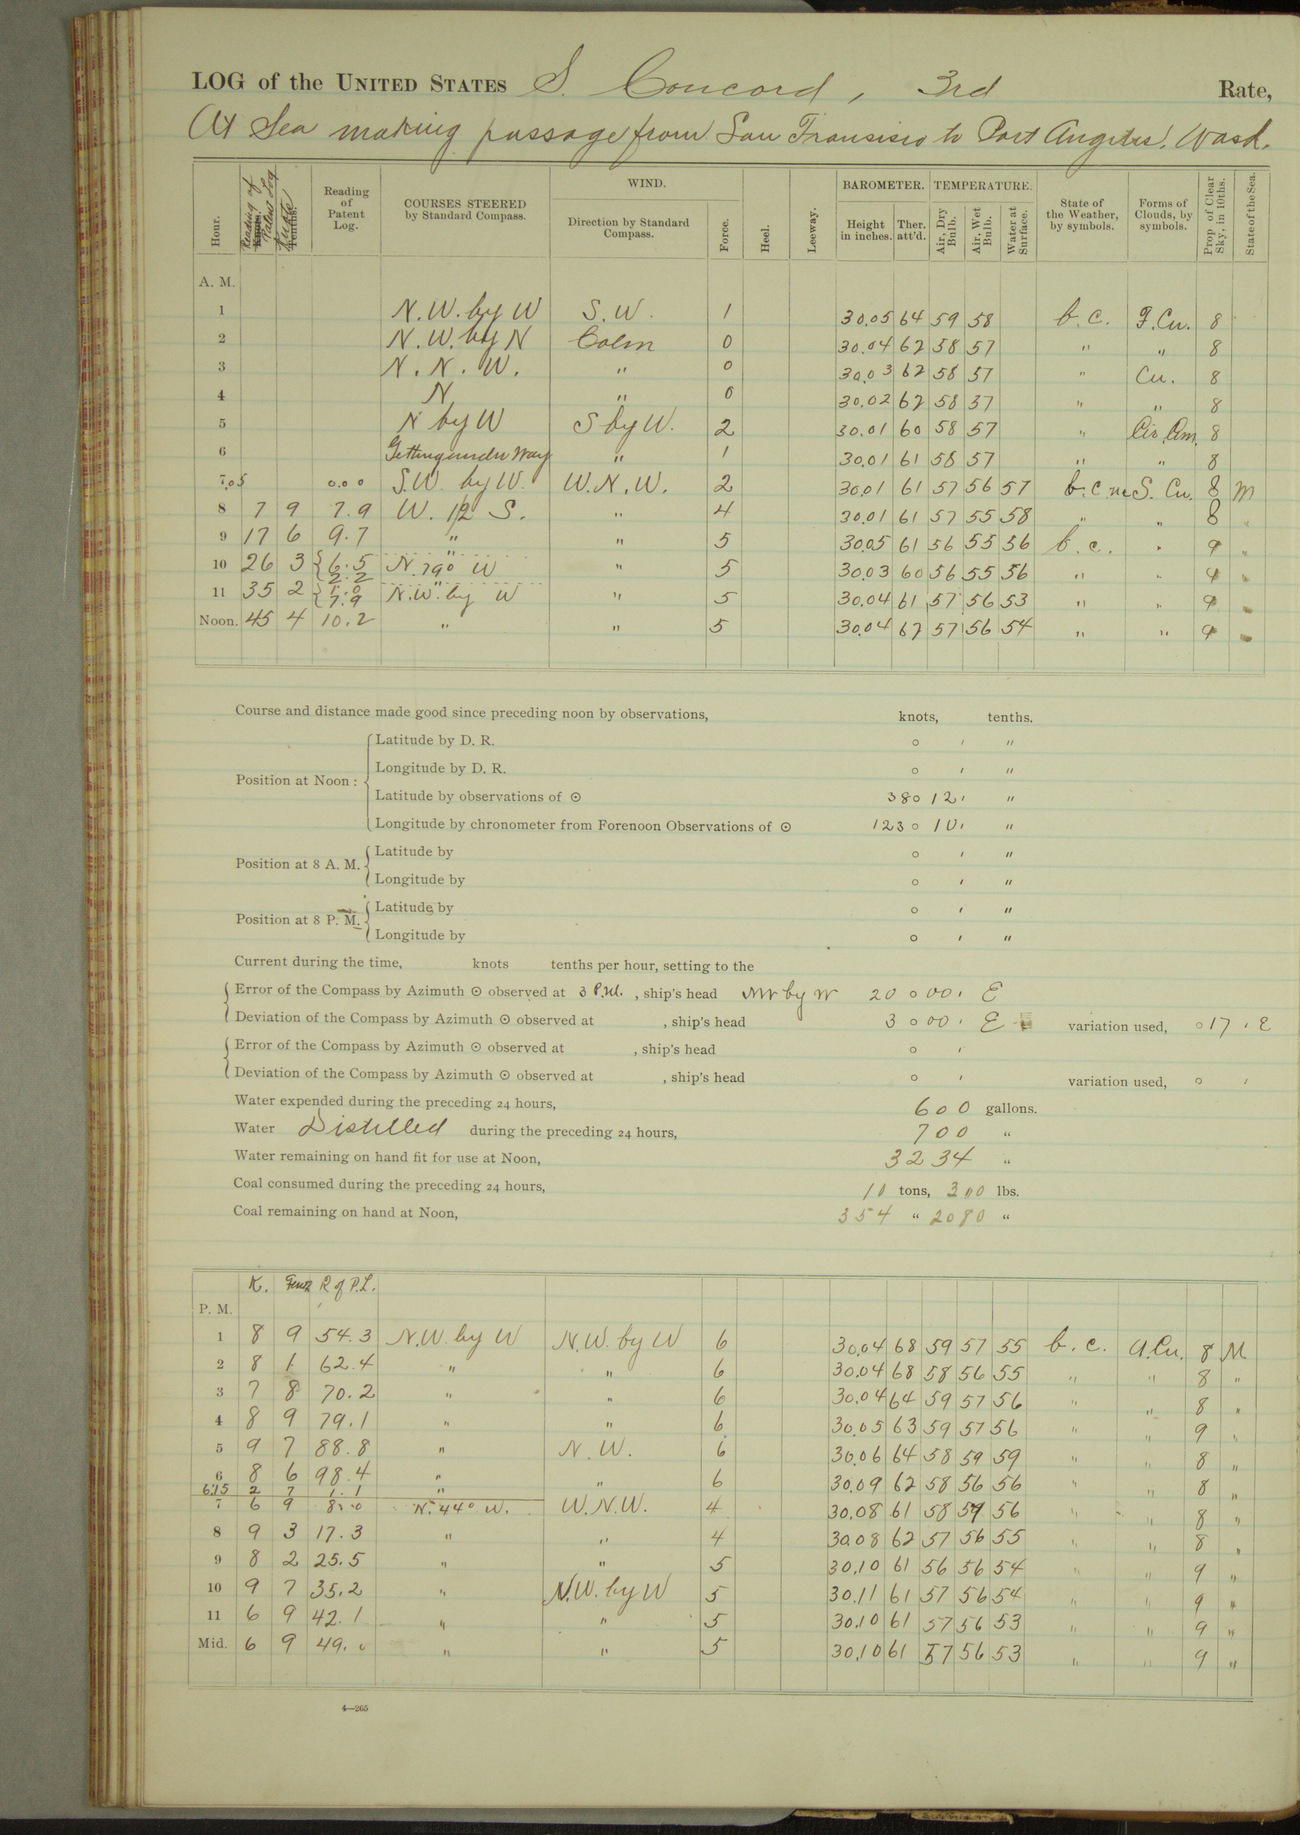 LOG of the UNITED STATES S. Concord, 3rd Rate,
At Sea making passage from San Fransisio to Port Angeles, Wash.
Hour. Reading of Patent Log Knots. Tenths. Reading of Patent Log. COURSES STEERED by Standard Compass. WIND. Direction by Standard Compass. Force. Heel. Leeway. BAROMETER. Height in inches. Ther. att'd. TEMPERATURE. Air, Dry Bulb. Air, Wet Bulb. Water at Surface. State of the Weather, by symbols. Forms of Clouds, by symbols. Prop. of Clear Sky, in 10ths. State of the Sea.
A. M.
1 N.W. by W S.W. 1 30.05 64 59 58 b.c. Cu. 8
2 N.W. by N Calm 0 30.04 62 58 57 " " 8
3 N.N.W. " 0 30.03 62 58 57 " Cu. 8
4 N. " 0 30.02 62 58 37 " " 8
5 N by W S by W. 2 30.01 60 58 57 " Cir. Cum. 8
6 Getting under Way " 1 30.01 61 58 57 " " 8
7.05 0.00 S.W. by W. W.N.W. 2 30.01 61 57 56 57 b.c.m S. Cu. 8 M
8 7 9 7.9 W. 1/2 S. " 4 30.01 61 57 55 58 " " 8 "
9 17 6 9.7 " " 5 30.05 61 56 55 56 b.c. " 9 "
10 26 3 { 6.5 2.2 " N. 79° W " 5 30.03 60 56 55 56 " " 9 "
11 35 2 { 1.0 7.9 " N.W. by W " 5 30.04 61 57 56 53 " " 9 "
Noon. 45 4 10.2 " " 5 30.04 62 57 56 54 " " 9 "
Course and distance made good since preceding noon by observations, knots, tenths.
Position at Noon:
Latitude by D. R. ° ′ ″
Longitude by D. R. ° ′ ″
Latitude by observations of ☉ 38° 12′ ″
Longitude by chronometer from Forenoon Observations of ☉ 123° 10′ ″
Position at 8 A. M.
Latitude by ° ′ ″
Longitude by ° ′ ″
Position at 8 P. M.
Latitude by ° ′ ″
Longitude by ° ′ ″
Current during the time, knots tenths per hour, setting to the
Error of the Compass by Azimuth ☉ observed at 3 P.M., ship's head NW by W 20° 00′ E
Deviation of the Compass by Azimuth ☉ observed at , ship's head 3° 00′ E variation used, ° 17′ E
Error of the Compass by Azimuth ☉ observed at , ship's head ° ′
Deviation of the Compass by Azimuth ☉ observed at , ship's head ° ′ variation used, ° ′
Water expended during the preceding 24 hours, 600 gallons.
Water Distilled during the preceding 24 hours, 700 "
Water remaining on hand fit for use at Noon, 3234 "
Coal consumed during the preceding 24 hours, 10 tons, 300 lbs.
Coal remaining on hand at Noon, 354 " 2080 "
K. R of P.L.
P. M.
1 8 9 54.3 N.W. by W N.W. by W 6 30.04 68 59 57 55 b.c. Cu. 8 M
2 8 1 62.4 " " 6 30.04 68 58 56 55 " " 8 "
3 7 8 70.2 " " 6 30.04 64 59 57 56 " " 8 "
4 8 9 79.1 " " 6 30.05 63 59 57 56 " " 9 "
5 9 7 88.8 " N.W. 6 30.06 64 58 59 59 " " 8 "
6 8 6 98.4 " " 6 30.09 62 58 56 56 " " 8 "
6.15 2 7 1.1 "
7 6 9 8.0 N. 44° W. W.N.W. 4 30.08 61 58 57 56 " " 8 "
8 9 3 17.3 " " 4 30.08 62 57 56 55 " " 8 "
9 8 2 25.5 " " 5 30.10 61 56 56 54 " " 9 "
10 9 7 35.2 " N.W. by W 5 30.11 61 57 56 54 " " 9 "
11 6 9 42.1 " " 5 30.10 61 57 56 53 " " 9 "
Mid. 6 9 49.0 " " 5 30.10 61 57 56 53 " " 9 "
4—265